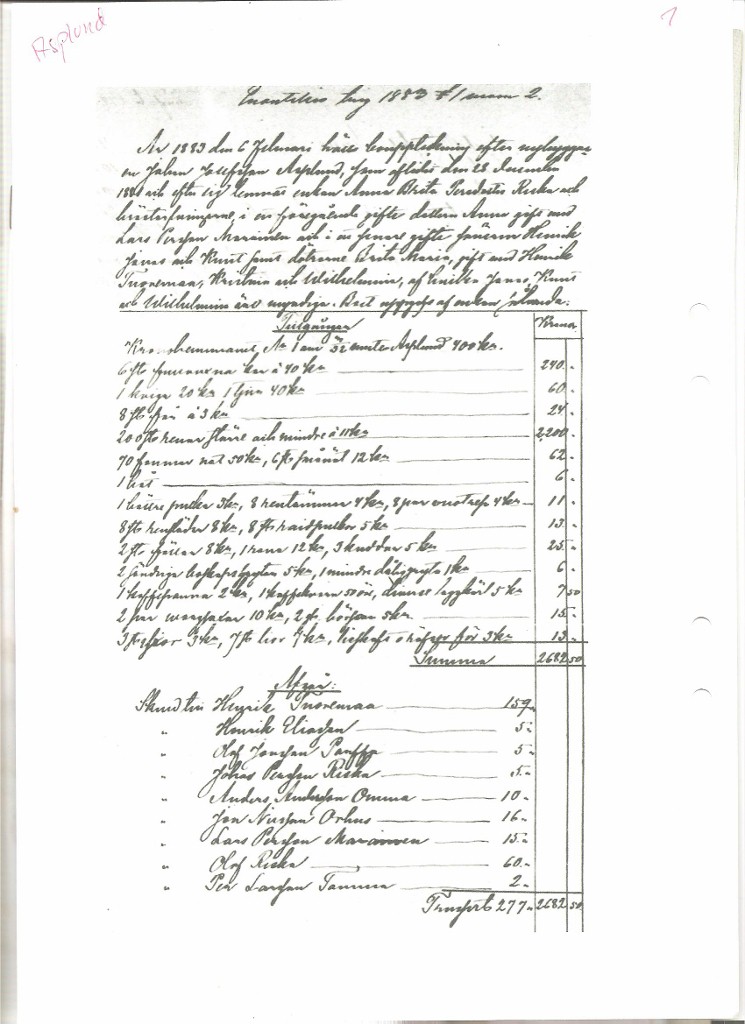 Asplund
1
ting 1883 § 1 mom 2.
År 1883 den 6 Februari hölls bouppteckning efter nybyggar-
en Johan Josefsson Asplund, som aflidit den 28 December
188 och efter sig lemnat enkan Anna Brita Persdotter Riska och
i en föregående gifte dottern Anna gift med
Lars Persson Marainen och i en senare gifte sönerna Henrik
Jonas och Knut samt döttrarne Brita Maria, gift med Henrik
Tuoremaa, Kristina och Wilhelmina, af hvilka Jonas, Knut
och Wilhelmina äro omyndige. Boet uppgafs af enkan
Tillgångar
Kronor
Kronohemmanet, No 1 om 3/32 mtl Asplund 400 kr.
6 st kor à 40 kr 240.-
1 kviga 20 kr 1 tjur 40 kr 60.-
8 st får à 3 kr 24.-
200 st renar större och mindre à 11 kr 2,200.-
70 famnar not 50 kr, 6 st 12 kr 62.-
1 båt 6.-
1 pulka 3 kr, 8 rentömmar 4 kr, 8 par 4 kr 11.-
8 st 8 kr, 8 st raidpulkor 5 kr 13.-
2 st fällar 8 kr, 1 rana 12 kr, 3 kuddar 5 kr 25.-
2 5 kr, 1 mindre 1 kr 6.-
1 kaffepanna 2 kr, 1 kaffekvarn 50 öre, diverse 5 kr 7 50
2 par 10 kr, 2 st börsor 5 kr 15.-
3 st skior 3 kr, 7 st liar 7 kr, för 3 kr 13.-
Summa 2682 50
Afgår:
Skuld till Henrik Tuoremaa 159.-
" Henrik Eliasson 5.-
" Olof Jonsson 5.-
" Johan Persson Riska 5.-
" Anders Andersson Omma 10.-
" Jon Nilsson Orhus 16.-
" Lars Persson Marainen 15.-
" Olof Riska 60.-
" Per Larsson Tamma 2.-
Transport 277.- 2682 50